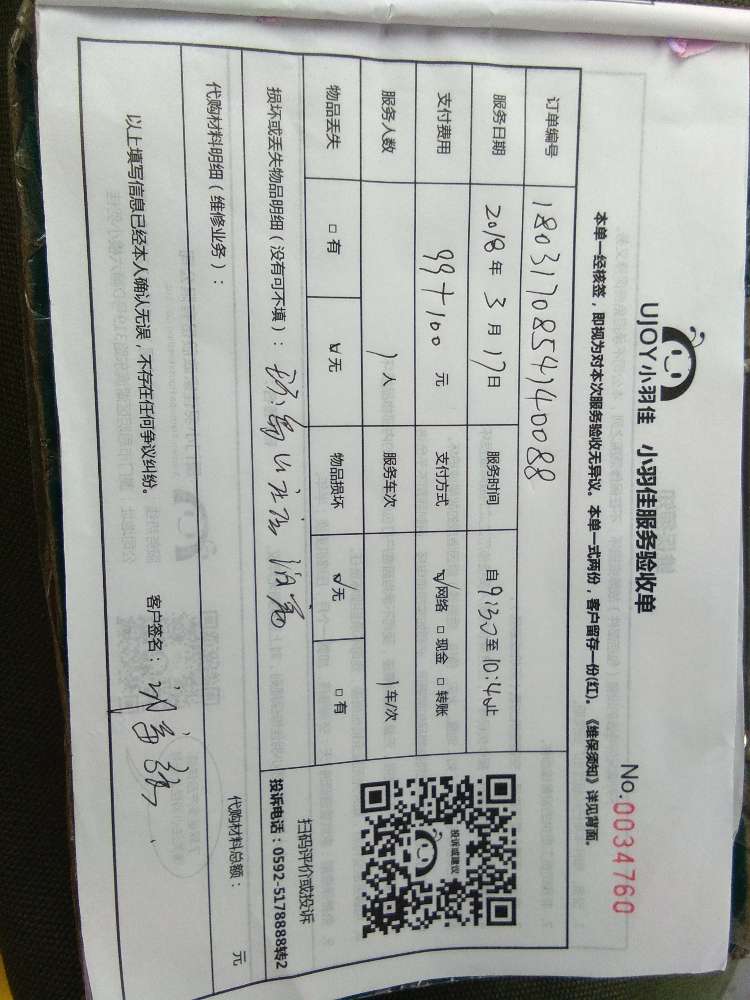 UJOY小羽佳 小羽佳服务验收单
No.0034760
本单一经核签，即视为对本次服务验收无异议。本单一式两份，客户留存一份(红)。《维保须知》详见背面。
订单编号 1803170854140088
服务日期 2018年3月17日 服务时间 自9:30至10:40止
支付费用 99+100元 支付方式 ☑网络 □现金 □转账
服务人数 1人 服务车次 1车/次
物品丢失 □有 ☑无 物品损坏 ☑无 □有
投诉或建议
扫码评价或投诉
投诉电话：0592-5178888转2
损坏或丢失物品明细（没有可不填）：
代购材料明细（维修业务）： 代购材料总额： 元
以上填写信息已经本人确认无误，不存在任何争议纠纷。 客户签名：